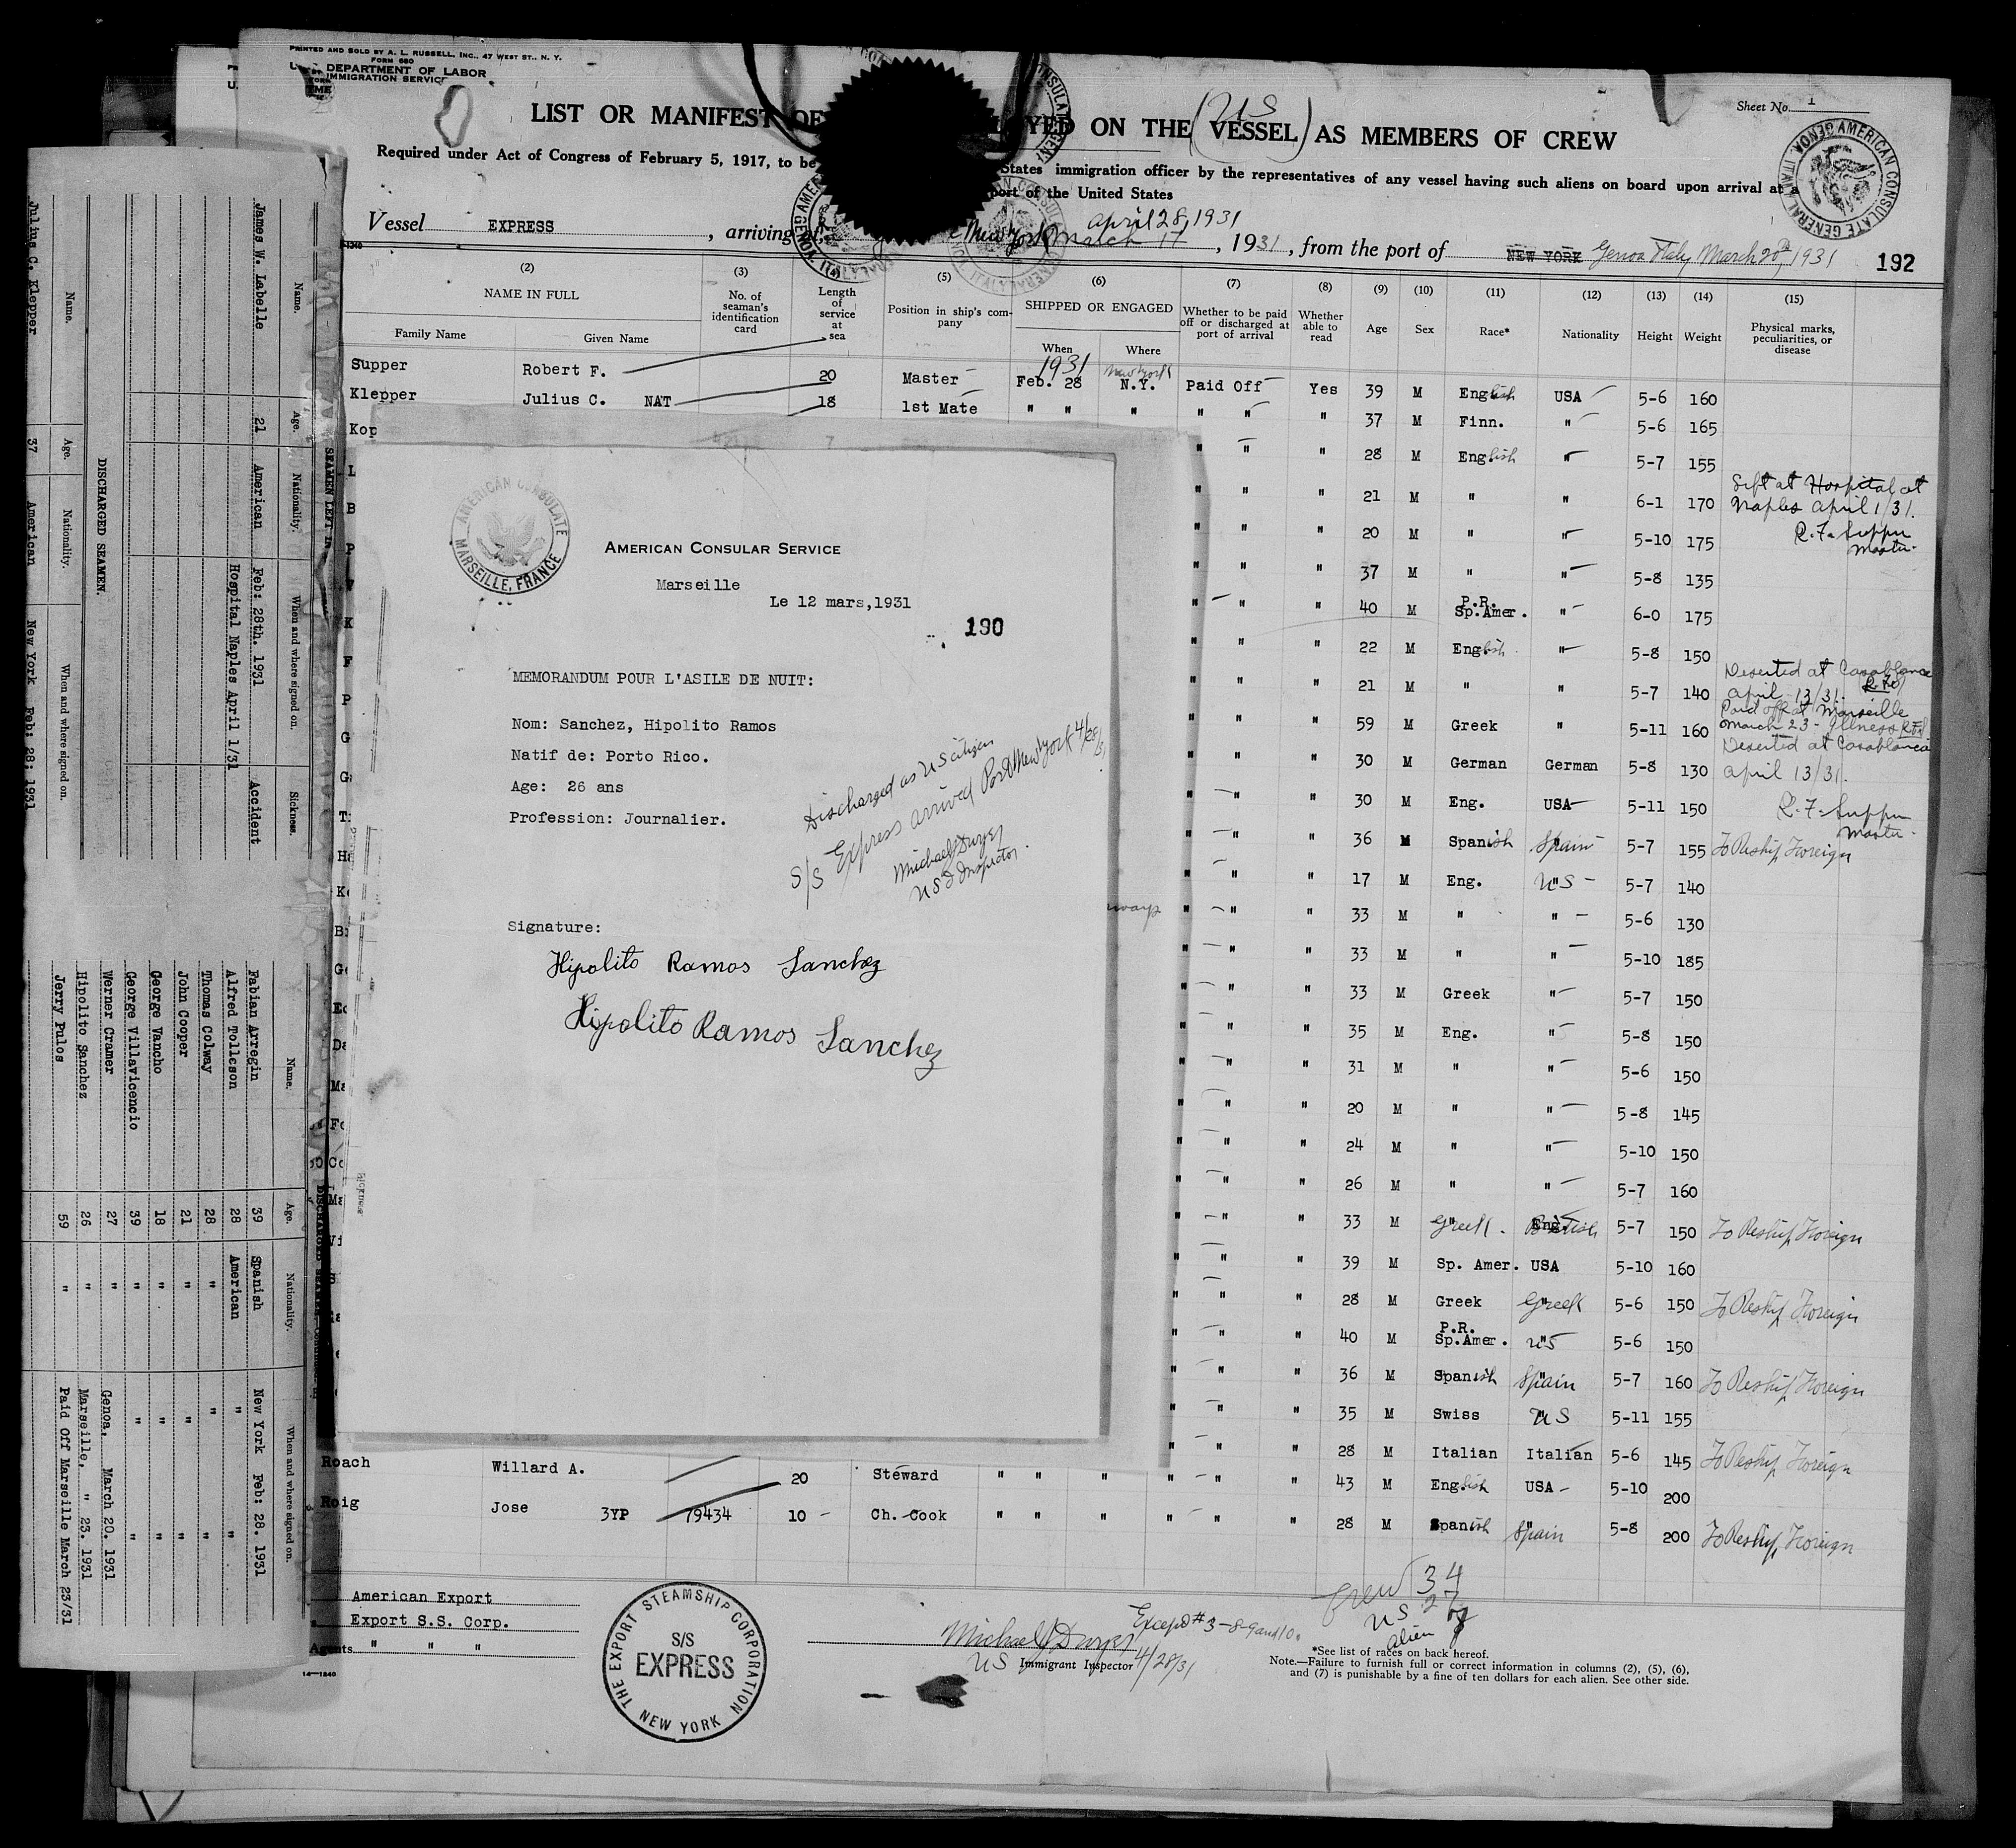 PRINTED AND SOLD BY A. L. RUSSELL, INC., 47 WEST ST., N. Y.
FORM 680
DEPARTMENT OF LABOR
IMMIGRATION SERVICE
Sheet No. 1
LIST OR MANIFEST OF YED ON THE (VESSEL) AS MEMBERS OF CREW
US
Required under Act of Congress of February 5, 1917, to be States immigration officer by the representatives of any vessel having such aliens on board upon arrival at a
port of the United States
Vessel EXPRESS, arriving at New York March 17, 1931, from the port of NEW YORK Genoa Italy March 20th, 1931
April 28, 1931
192
AMERICAN CONSULATE GENERAL ITALY GENOA
(2) (3) (5) (6) (7) (8) (9) (10) (11) (12) (13) (14) (15)
NAME IN FULL
Family Name Given Name
No. of seaman's identification card
Length of service at sea
Position in ship's company
SHIPPED OR ENGAGED
When Where
Whether to be paid off or discharged at port of arrival
Whether able to read
Age Sex Race* Nationality Height Weight
Physical marks, peculiarities, or disease
Supper Robert F. 20 Master 1931 Feb. 28 New York N.Y. Paid Off Yes 39 M English USA 5-6 160
Klepper Julius C. NAT 18 1st Mate " " " " " " 37 M Finn. " 5-6 165
Kop " " " 28 M English " 5-7 155
" " " 21 M " " 6-1 170 Left at Hospital at Naples April 1/31. R.F. Supper Master
" " " 20 M " " 5-10 175
" " " 37 M " " 5-8 135
" " " 40 M P.R. Sp.Amer. " 6-0 175
" " " 22 M English " 5-8 150
" " " 21 M " " 5-7 140 Deserted at Casablanca April 13/31.
" " " 59 M Greek " 5-11 160 Paid off at Marseille March 23 - Illness
" " " 30 M German German 5-8 130 Deserted at Casablanca April 13/31.
" " " 30 M Eng. USA 5-11 150 R.F. Supper Master
" " " 36 M Spanish Spain 5-7 155 To Reship Foreign
" " " 17 M Eng. US 5-7 140
" " " 33 M " " 5-6 130
" " " 33 M " " 5-10 185
" " " 33 M Greek " 5-7 150
" " " 35 M Eng. " 5-8 150
" " " 31 M " " 5-6 150
" " " 20 M " " 5-8 145
" " " 24 M " " 5-10 150
" " " 26 M " " 5-7 160
" " " 33 M Greek. British 5-7 150 To Reship Foreign
" " " 39 M Sp. Amer. USA 5-10 160
" " " 28 M Greek Greek 5-6 150 To Reship Foreign
" " " 40 M P.R. Sp.Amer. US 5-6 150
" " " 36 M Spanish Spain 5-7 160 To Reship Foreign
" " " 35 M Swiss US 5-11 155
" " " 28 M Italian Italian 5-6 145 To Reship Foreign
Roach Willard A. 20 Steward " " " " " " 43 M English USA 5-10 200
Roig Jose 3YP 79434 10 Ch. Cook " " " " " " 28 M Spanish Spain 5-8 200 To Reship Foreign
AMERICAN CONSULATE
MARSEILLE, FRANCE
AMERICAN CONSULAR SERVICE
Marseille
Le 12 mars,1931
190
MEMORANDUM POUR L'ASILE DE NUIT:
Nom: Sanchez, Hipolito Ramos
Natif de: Porto Rico.
Age: 26 ans
Profession: Journalier.
Discharged as US citizen
S/S Express arrived Port New York 4/28/31
Michael J Dwyer
US I Inspector.
Signature:
Hipolito Ramos Sanchez
Hipolito Ramos Sanchez
American Export
Export S.S. Corp.
Agents " " "
14—1240
THE EXPORT STEAMSHIP CORPORATION
S/S
EXPRESS
NEW YORK
Michael J Dwyer Except #3-8-9 and 10.
US Immigrant Inspector 4/28/31
Crew 34
US 27
Alien 7
*See list of races on back hereof.
Note.—Failure to furnish full or correct information in columns (2), (5), (6),
and (7) is punishable by a fine of ten dollars for each alien. See other side.
SEAMEN LEFT IN
Name. Age. Nationality. When and where signed on. Sickness.
James W. Labelle 21 American Feb: 28th. 1931 Accident
Hospital Naples April 1/31
DISCHARGED SEAMEN.
Name. Age. Nationality. When and where signed on.
Julius C. Klepper 37 American New York Feb: 28: 1931
Name. Age. Nationality. When and where signed on.
Fabian Arregin 39 Spanish New York Feb: 28. 1931
Alfred Tolleson 28 American " "
Thomas Colway 28 " " "
John Cooper 21 " " "
George Vancho 18 " " "
George Villavicencio 39 " " "
Werner Cramer 27 " Genoa, March 20. 1931
Hipolito Sanchez 26 " Marseille, " 23. 1931
Jerry Pulos 59 " Paid Off Marseille March 23/31